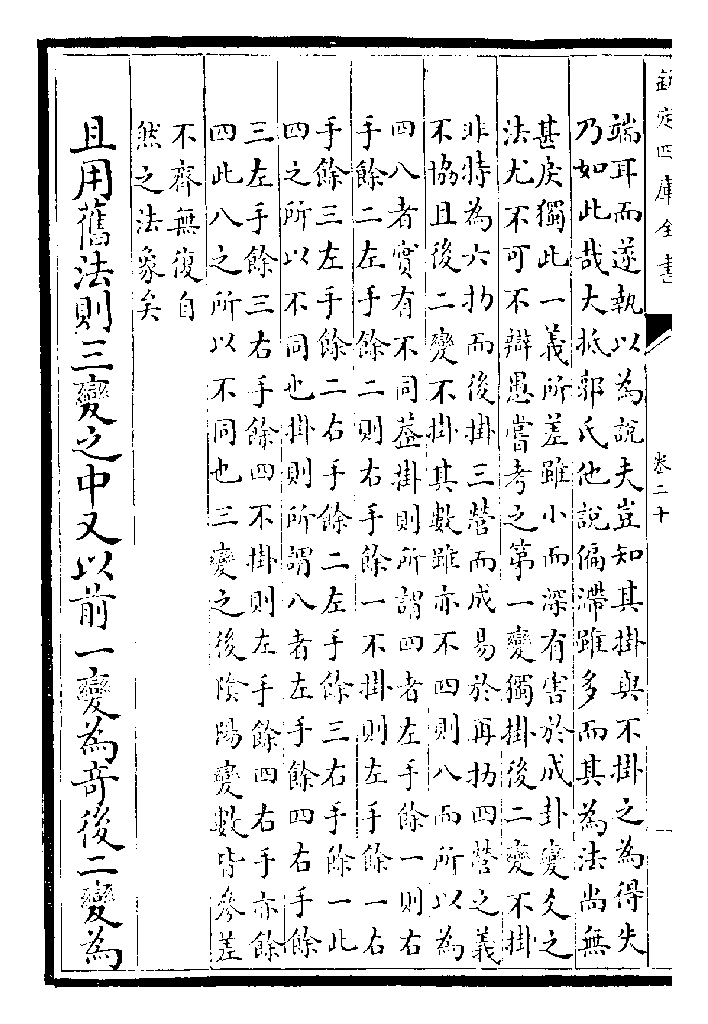 欽定四庫全書
卷二十
端耳而遂執以為說夫豈知其掛與不掛之為得失
乃如此哉大抵郭氏他說偏滯雖多而其為法尚無
甚戾獨此一義所差雖小而深有害於成卦變爻之
法尤不可不辯愚嘗考之第一變獨掛後二變不掛
非特為六扐而後掛三營而成易於再扐四營之義
不協且後二變不掛其數雖亦不四則八而所以為
四八者實有不同葢掛則所謂四者左手餘一則右
手餘二左手餘二則右手餘一不掛則左手餘一右
手餘三左手餘二右手餘二左手餘三右手餘一此
四之所以不同也掛則所謂八者左手餘四右手餘
三左手餘三右手餘四不掛則左手餘四右手亦餘
四此八之所以不同也三變之後陰陽變數皆參差
不齊無復自
然之法象矣
且用舊法則三變之中又以前一變為奇後二變為